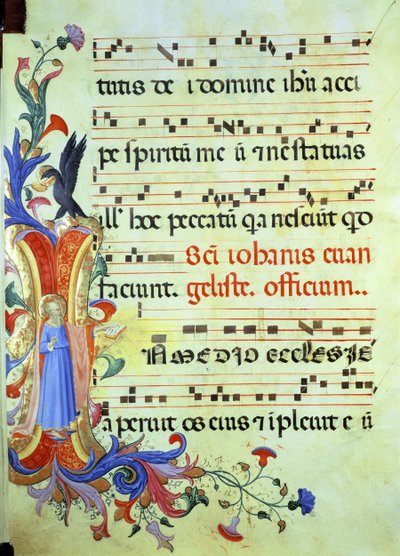 tutis de i domine ihu acci
pe spiritū me ū ⁊ ne statuas
illˢ hoc peccatū qa nesciūt qd
faciunt. Sci iohanis euan
geliste. officium..
N MEDIO ECCLESIE
aperuit os eius ⁊ ipleuit e ū